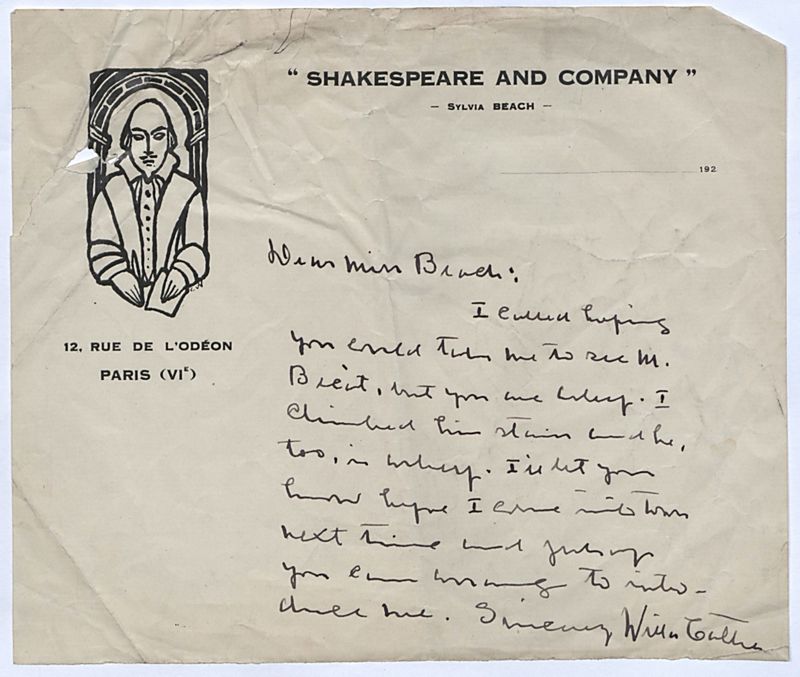 “ SHAKESPEARE AND COMPANY ”
– SYLVIA BEACH –
192
12, RUE DE L'ODÉON
PARIS (VIᴱ)
Dear Miss Beach:
I called hoping
you could take me to see M.
Bécat, but you are asleep. I
climbed his stairs and he,
too, is asleep. I'll let you
know before I come into town
next time and perhaps
you can arrange to intro-
duce me. Sincerely Willa Cather